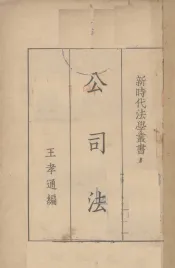 新時代法學叢書
公司法
王孝通編